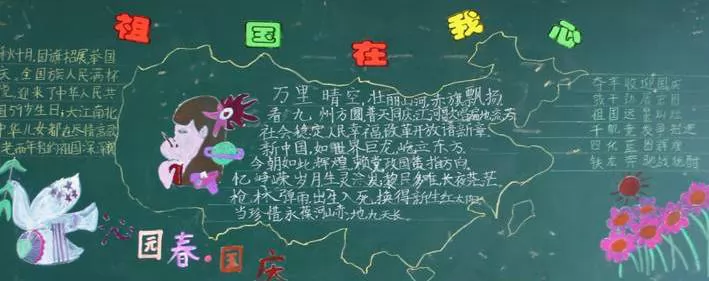 祖国在我心
秋十月,国旗招展,举国
庆,全国族人民满怀
望,迎来了中华人民共
国59岁生日,大江南北
中华儿女都在尽情高歌
老而年轻的祖国
万里晴空,壮丽山河,赤旗飘扬
看九州方圆普天同庆,江河
社会稳定人民幸福改革开放谱新章
新中国,如世界巨龙屹立东方
今朝如此辉煌赖党政国策指方向
忆峥嵘岁月生灵涂炭黎民多难长夜茫茫
枪林弹雨出生入死,换得新生红太阳
当珍惜永葆河山赤,地九天长
国庆
祖国远景
千帆竞发争
四化
铁龙奔驰战
沁园春·国庆